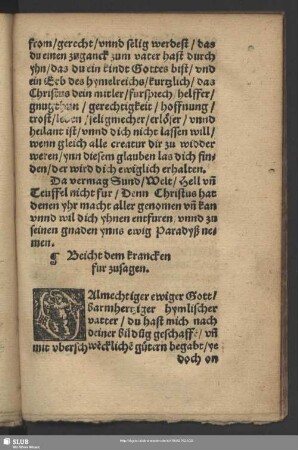 from/gerecht/vnnd selig werdest/das
du einen zuganck zum vater hast durch
yhn/das du ein kindt Gottes bist/vnd
ein Erb des hymelreichs/kurtzlich/das
Christus dein mitler/fursprech/helffer/
gnugthun/gerechtigkeit/hoffnung/
trost/leben/seligmecher/erlöser/vnnd
heilant ist/vnnd dich nicht lassen will/
wenn gleich alle creatur dir zu widder
weren/ynn diesem glauben las dich fin-
den/der wird dich ewiglich erhalten.
Da vermag Sund/Welt/Hell vñ
Teuffel nicht fur/Denn Christus hat
denen yhr macht aller genomen vñ kan
vnnd wil dich yhnen entfuren/vnnd zu
seinen gnaden ynns ewig Paradyß ne-
men.
¶ Beicht dem krancken
fur zusagen.
O Almechtiger ewiger Gott/
barmhertziger hymlischer
vatter/du hast mich nach
deiner bildũg geschaff/vñ
mit vberschwecklichē gütern begabt/ye
doch on
SLUB